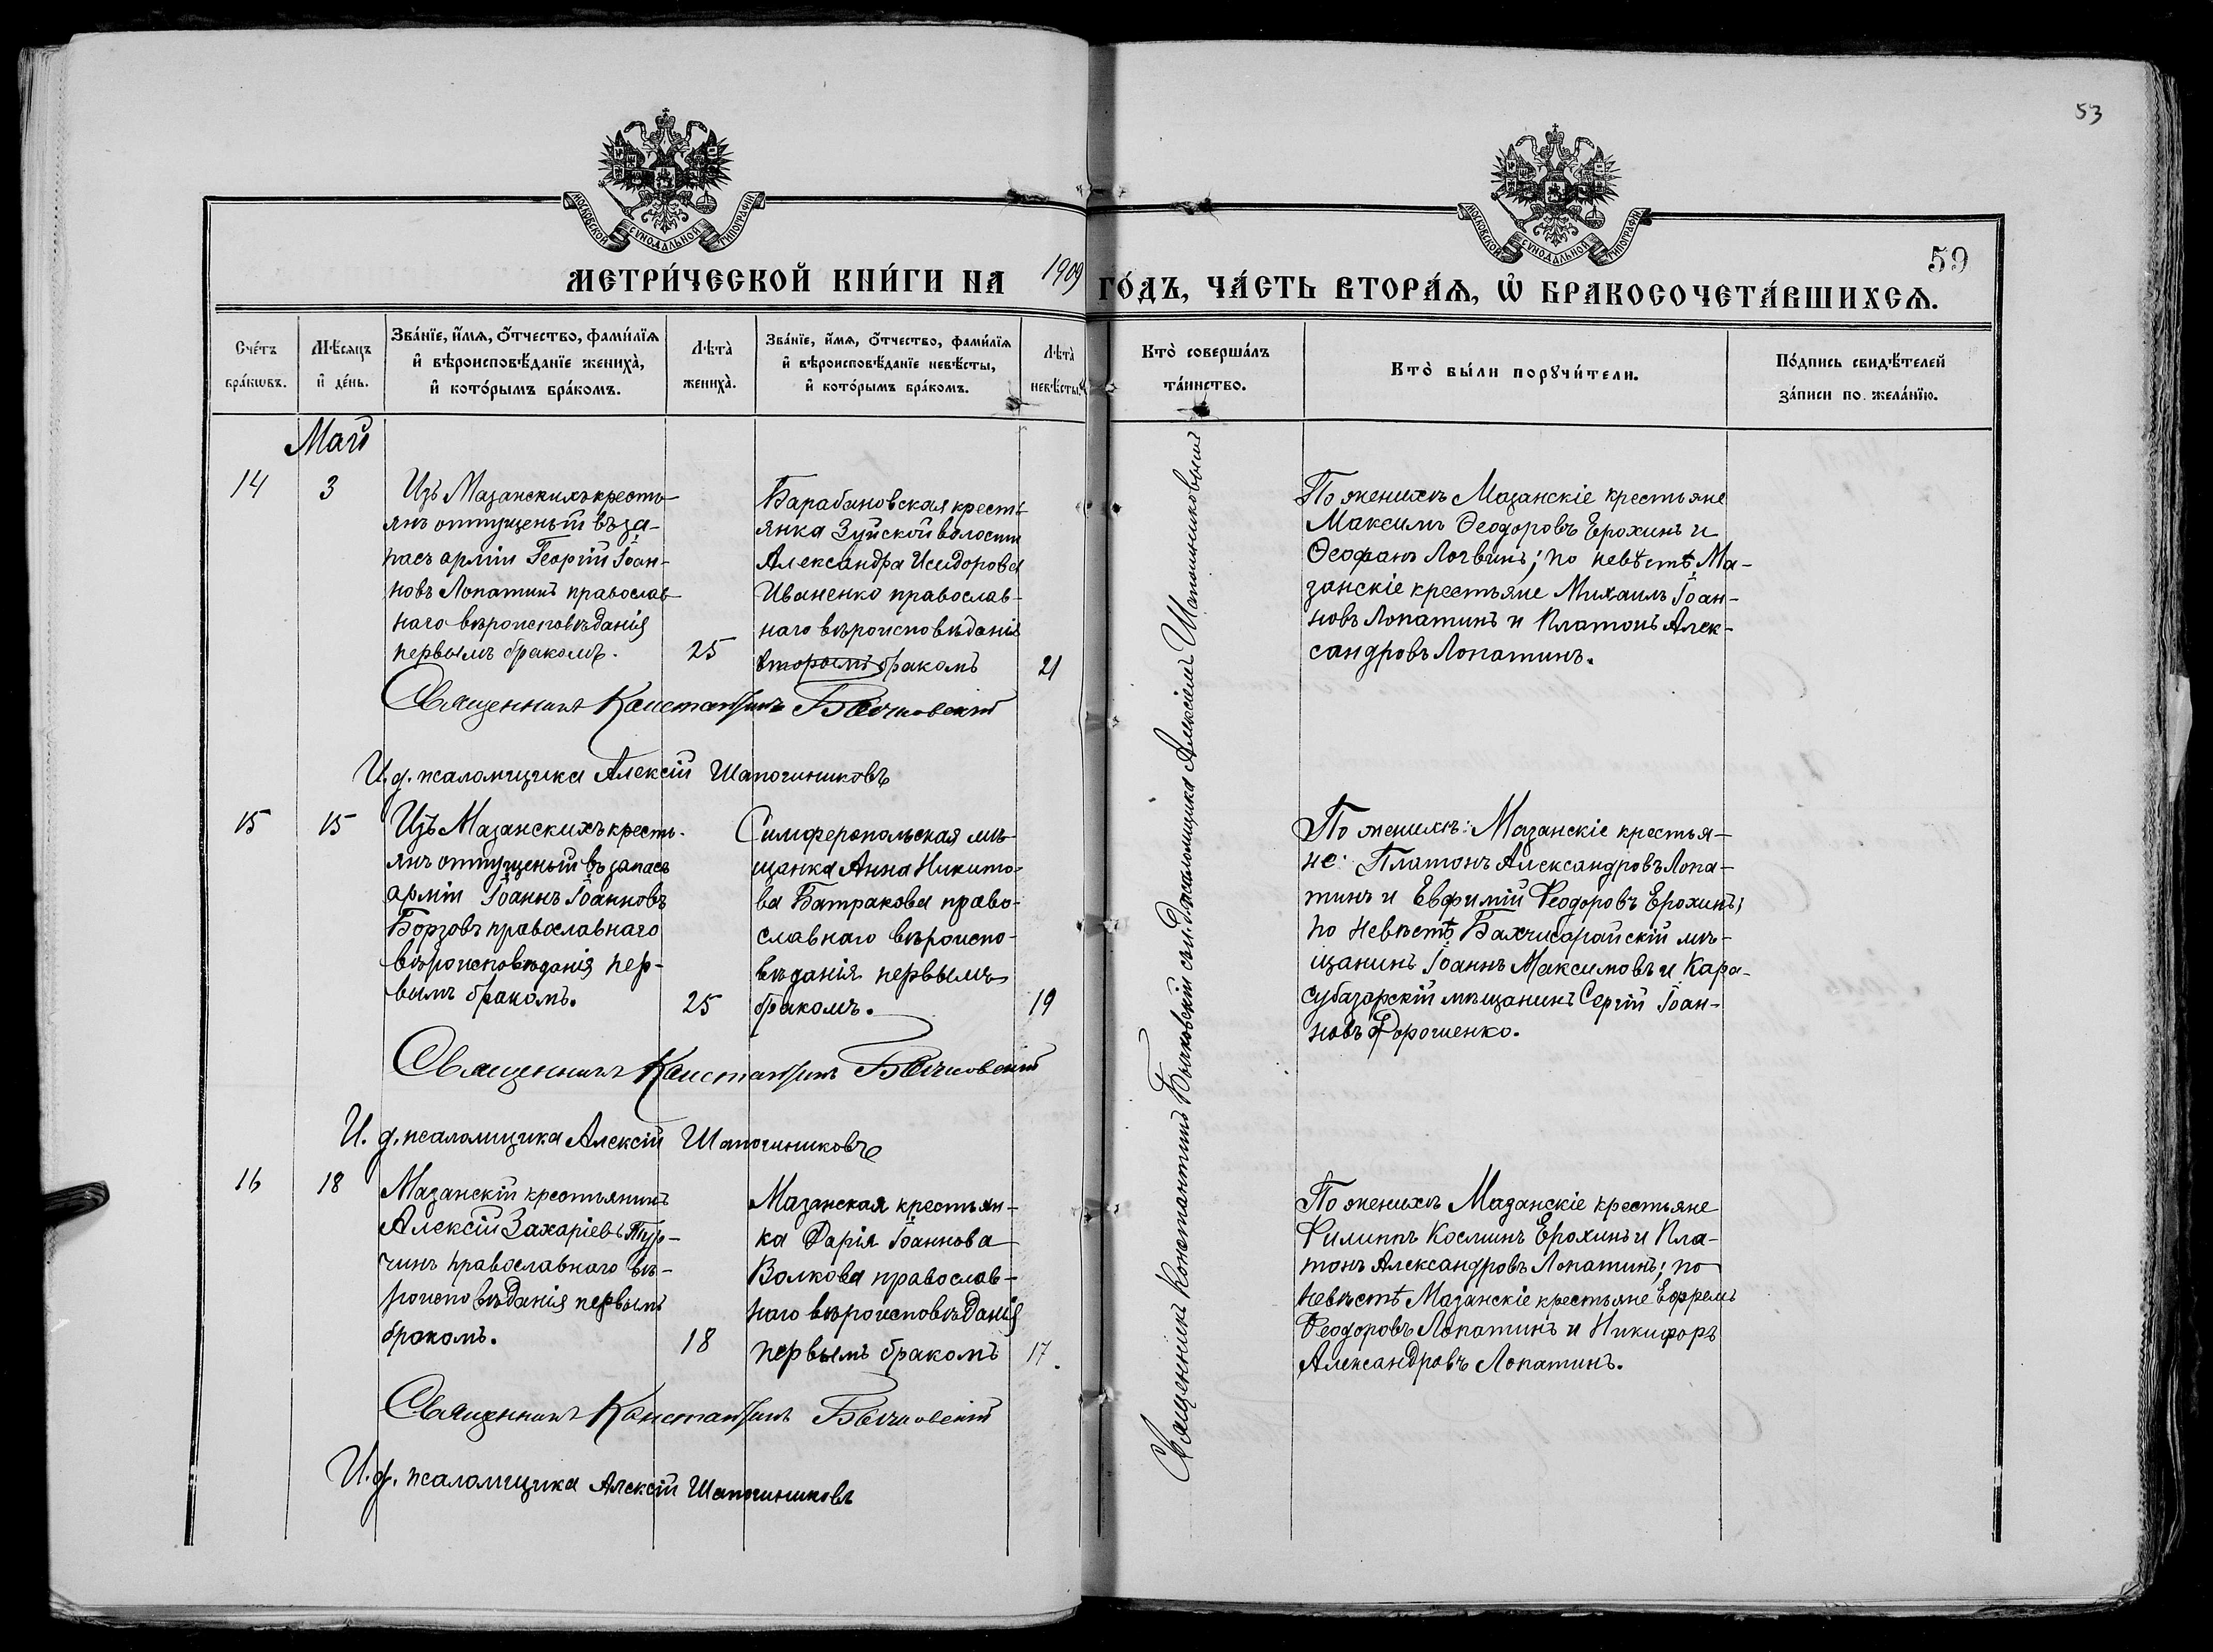 53
МОСКОВСКОЙ СѴНОДАЛЬНОЙ ТИПОГРАФІИ
МОСКОВСКОЙ СѴНОДАЛЬНОЙ ТИПОГРАФІИ
59
МЕТРИ́ЧЕСКОЙ КНИ́ГИ НА 1909 ГО́ДЪ, ЧА́СТЬ ВТОРА́Ѧ, Ѡ҆ БРАКОСОЧЕТА́ВШИХСѦ.
Сче́тъ
бра́кѡвъ.
Мѣ́сяцъ
и҆ де́нь.
Зва́нїе, и҆́мѧ, ѻ҆́тчество, фами́лїѧ
и҆ вѣроисповѣ́данїе жениха̀,
и҆ кото́рымъ бра́комъ.
Лѣта̀
жениха̀.
Зва́нїе, и҆́мѧ, ѻ҆́тчество, фами́лїѧ
и҆ вѣроисповѣ́данїе невѣ́сты,
и҆ кото́рымъ бра́комъ.
Лѣта̀
невѣ́сты.
Кто̀ соверша́лъ
та́инство.
Кто̀ бы́ли порꙋчи́тели.
По́дпись свидѣ́телей
за́писи по жела́нїю.
Май
14
3
Изъ Мазанскихъ кресть-
янъ отпущеный въ за-
пасъ арміи Георгій Іоан-
новъ Лопатинъ православ-
наго вѣроисповѣданія
первымъ бракомъ.
25
Барабановская кресть-
янка Зуйской волости
Александра Исидорова
Иваненко православ-
наго вѣроисповѣданія
вторымъ бракомъ
21
По женихѣ Мазанскіе крестьяне
Максимъ Ѳеодоровъ Ерохинъ и
Ѳеофанъ Логвинъ; по невѣстѣ Ма-
занскіе крестьяне Михаилъ Іоан-
новъ Лопатинъ и Платонъ Алек-
сандровъ Лопатинъ.
Священникъ Константинъ Бычковскій
И.д. псаломщика Алексій Шапошниковъ
15
15
Изъ Мазанскихъ кресть-
янъ отпущеный въ запасъ
арміи Іоаннъ Іоанновъ
Борзовъ православнаго
вѣроисповѣданія пер-
вымъ бракомъ.
25
Симферопольская мѣ-
щанка Анна Никито-
ва Батракова право-
славнаго вѣроиспо-
вѣданія первымъ
бракомъ.
19
По женихѣ: Мазанскіе крестья-
не: Платонъ Александровъ Лопа-
тинъ и Евфимій Ѳеодоровъ Ерохинъ;
по невѣстѣ Бахчисарайскій мѣ-
щанинъ Іоаннъ Максимовъ и Кара-
субазарскій мѣщанинъ Сергій Іоан-
новъ Дорошенко.
Священникъ Константинъ Бычковскій
И. д. псаломщика Алексій Шапошниковъ
16
18
Мазанскій крестьянинъ
Алексій Захаріевъ Тур-
чинъ православнаго вѣ-
роисповѣданія первымъ
бракомъ.
18
Мазанская крестьян-
ка Дарія Іоаннова
Волкова православ-
наго вѣроисповѣданія
первымъ бракомъ
17.
По женихѣ Мазанскіе крестьяне
Филиппъ Косминъ Ерохинъ и Пла-
тонъ Александровъ Лопатинъ; по
невѣстѣ Мазанскіе крестьяне Ефремъ
Ѳеодоровъ Лопатинъ и Никифоръ
Александровъ Лопатинъ.
Священникъ Константинъ Бычковскій
И.д. псаломщика Алексій Шапошниковъ
Священникъ Константинъ Бычковскій съ и.д. псаломщика Алексіемъ Шапошниковымъ